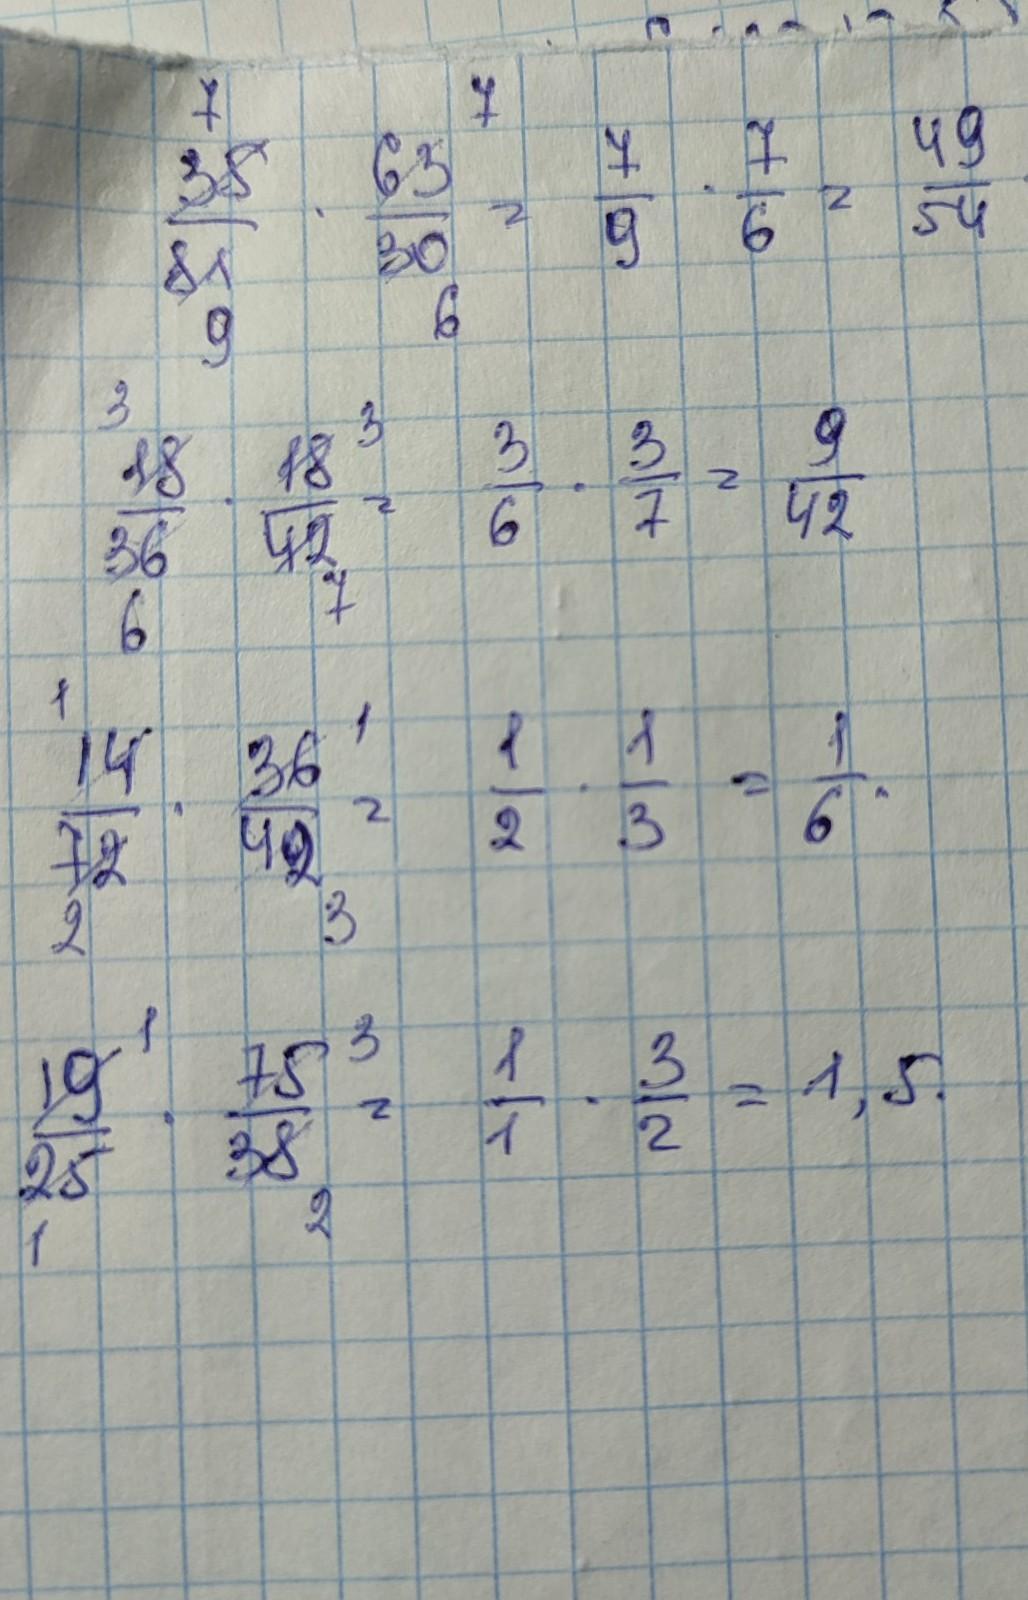 7 7
35/81 · 63/30 = 7/9 · 7/6 = 49/54
9 6
3 3
18/36 · 18/42 = 3/6 · 3/7 = 9/42
6 7
1 1
14/72 · 36/42 = 1/2 · 1/3 = 1/6.
2 3
1 3
19/25 · 75/38 = 1/1 · 3/2 = 1,5.
1 2